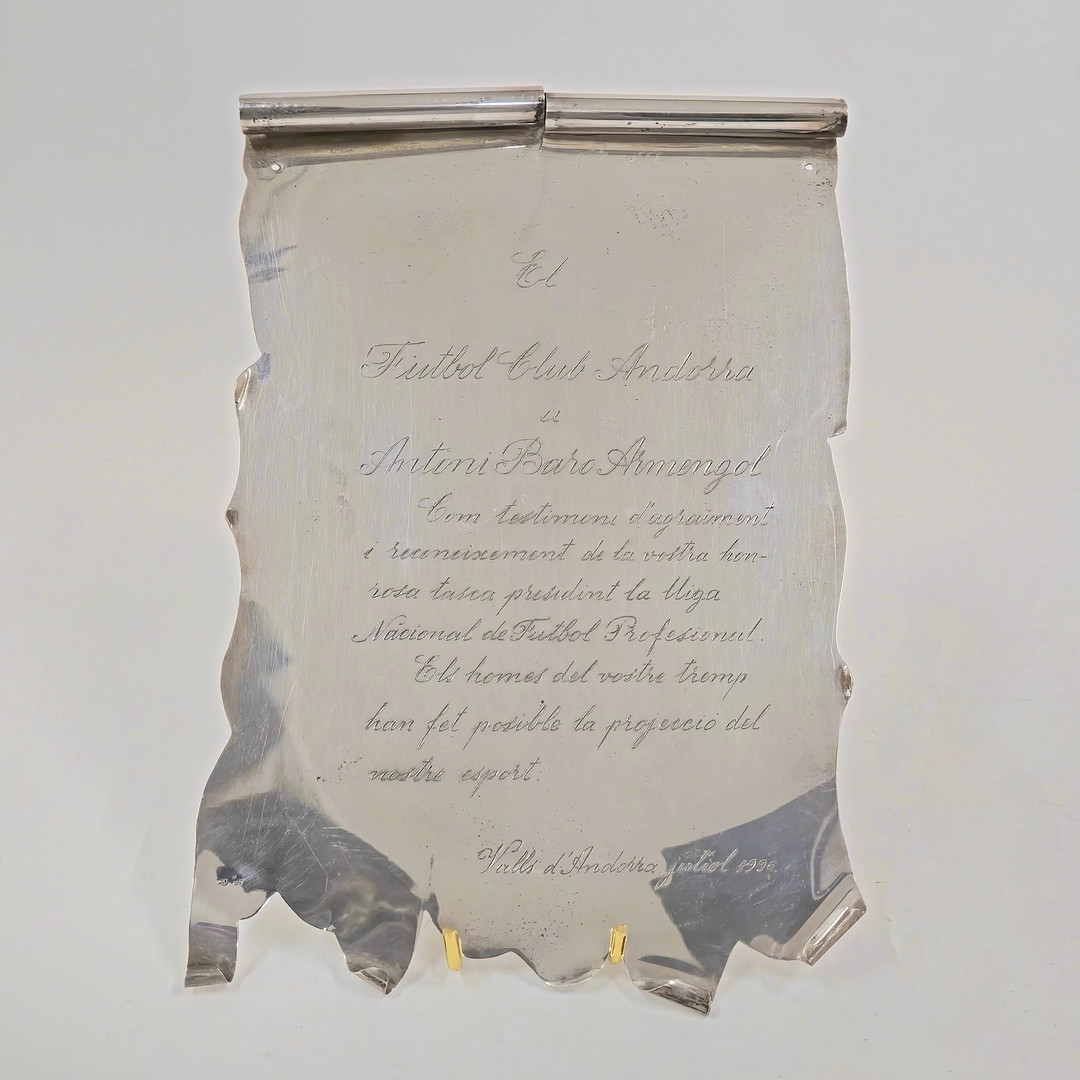 El
Futbol Club Andorra
a
Antoni Baro Armengol
Com testimoni d'agraiment
i reconeixement de la vostra hon-
rosa tasca presidint la lliga
Nacional de Futbol Profesional.
Els homes del vostre tremp
han fet posible la projecció del
nostre esport.
Valls d'Andorra juliol